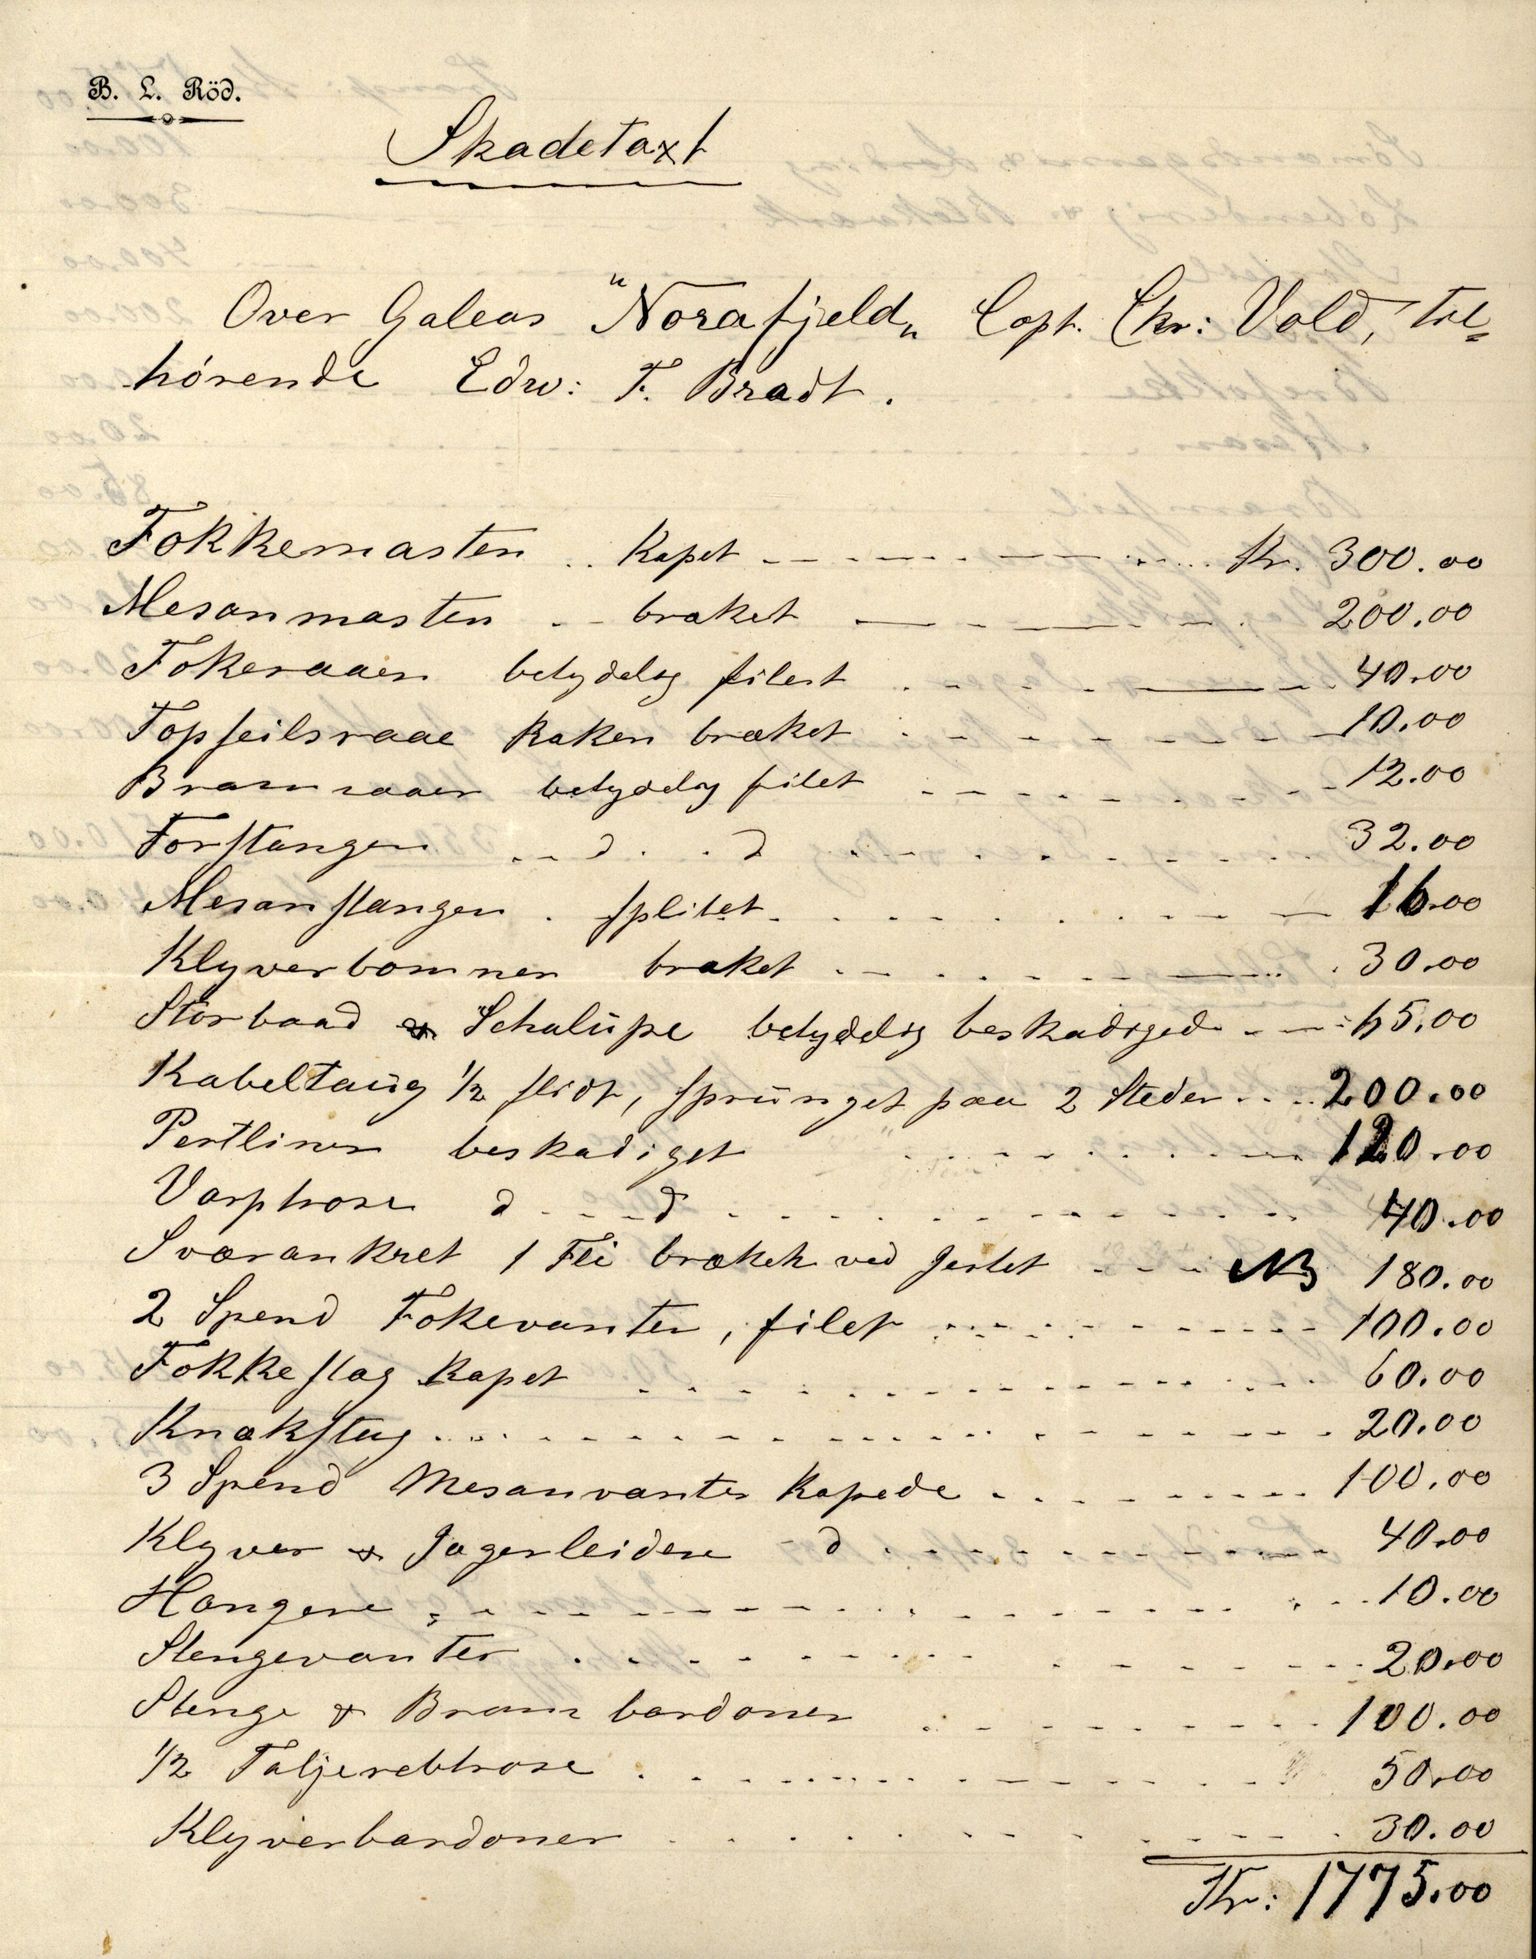 B. L. Röd.
Skadetaxt
Over Galeas "Norafjeld" Capt. Chr: Vold, til=
hörende Edw: F. Bradt.
Fokkemasten .. kapet Kr. 300.00
Mesanmasten .. braket 200.00
Fokeraaen betydelig filest 40.00
Topseilsraae Raken bræket 10.00
Bramraaen betydelig filet 12.00
Forstangen d. d 32.00
Mesanstangen . splitet 16.00
Klyverbommen braket 30.00
Storbaad & Schalupe betydelig beskadiget 65.00
Kabeltaug 1/2 slidt, sprunget paa 2 Steder 200.00
Pertliner beskadiget 120.00
Varptrose d d 40.00
Sværankret 1 Fli bræket ved Jertet NB 180.00
2 Spend Fokevanter, filet 100.00
Fokkestag kapet 60.00
Knækstag 20.00
3 Spend Mesanvanter kapede 100.00
Klyver & Jagerleidere d 40.00
Hangere 10.00
Stengevanter 20.00
Stenge & Bram bardoner 100.00
1/2 Taljerebtrose 50.00
Klyverbardoner 30.00
Kr: 1775.00